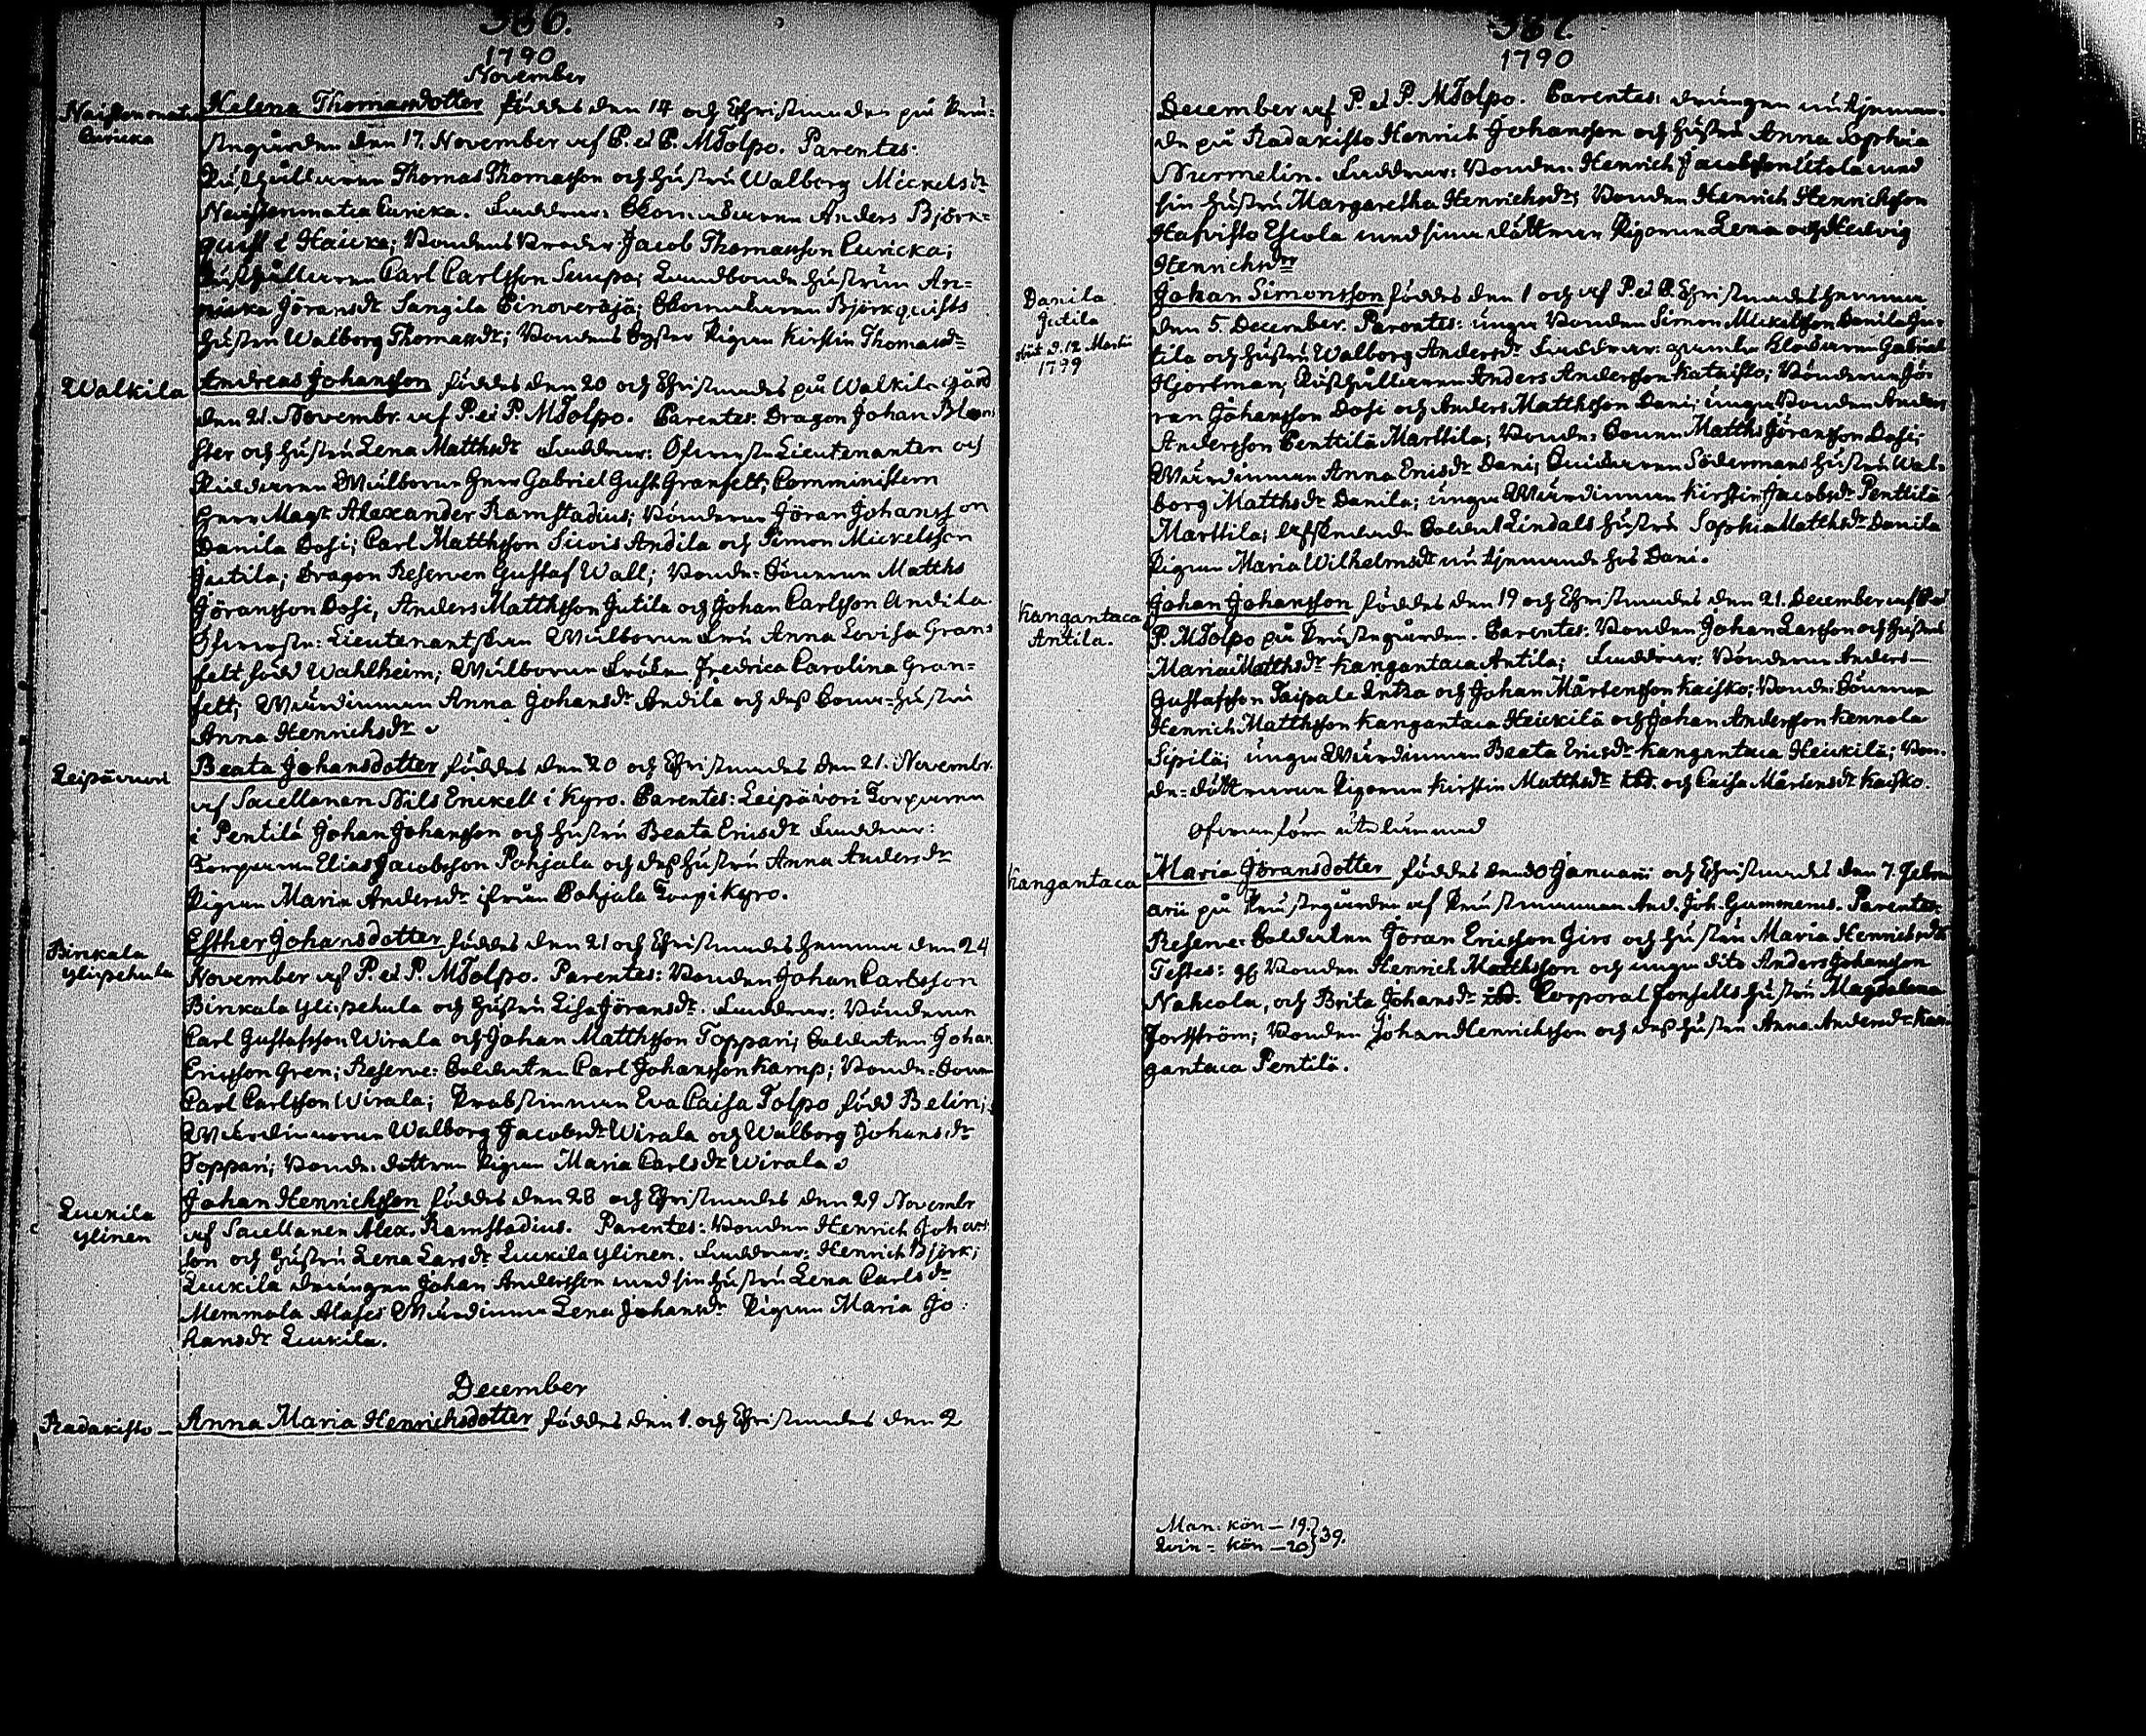 386.
1790
November
Naistenmatca
Curicka
Helena Thomasdotter föddes den 14 och Christnades på Prä-
stegården den 17. November af P. et P. M Tolpo. Parentes:
Rusthållaren Thomas Thomasson och hustru Walborg Mickelsdr
Naistenmatca Curicka. Faddrar: Anders Björk-
quist i Hauka; Bondens Broder Jacob Thomasson Curicka;
Rusthållaren Carl Carlsson Simpa; Landbonde hustrun An-
nicka Jöransdr Sangila Einoverajä; Björkquists
hustru Walborg Thomasdr; Bondens Syster Pigan Kirstin Thomasdr
Walkila
Andreas Johansson föddes den 20 och Christnades på Walkila gård
den 21. Novembr. af P. et P. M Tolpo. Parentes: Dragon Johan Blom-
ster och hustru Lena Matthsdr Faddrar: Öfverste Lieutenanten och
Riddaren Wälborne Herr Gabriel Gust. Granfelt; Comministern
Herr Magr Alexander Ramstadius; Bönderne Jöran Johansson
Danila Dosi; Carl Matthsson Suois Andila och Simon Mickelsson
Jutila; Dragon Reserven Gustaf Wall; Bonde-Sönerne Matths
Jöransson Dosi, Anders Matthsson Jutila och Johan Carlsson Andila.
Öfverste-Lieutenantskan Wälborna Fru Anna Lovisa Gran-
felt född Wahlheim; Wälborna Fröken Fredrica Carolina Gran-
felt; Wärdinnan Anna Johansdr Andila och dess Sons-hustru
Anna Henrichsdr
Leipävuori
Beata Johansdotter föddes den 20 och Christnades den 21. Novembr.
af Sacellanen Nils Enckell i Kyro. Parentes: Leipävori Torparen
i Pentilä Johan Johansson och hustru Beata Ericsdr Faddrar:
Torparen Elias Jacobsson Pohjala och dess hustru Anna Andersdr
Pigan Maria Andersdr ifrån Pohjala Torp i Kyro.
Binkala
Ylipehula
Esther Johansdotter föddes den 21 och Christnades hemma den 24
November af P. et P. M Tolpo. Parentes: Bonden Johan Carlsson
Binkala Ylipehula och hustru Lisa Jöransdr. Faddrar: Bönderne
Carl Gustafsson Wirala och Johan Matthsson Toppari; Soldaten Johan
Ericsson Gren; Reserve-Soldaten Carl Johansson Kamp; Bonde-Sonen
Carl Carlsson Wirala; Probstinnan Eva Caisa Tolpo född Belin;
Wärdinnorna Walborg Jacobsdr Wirala och Walborg Johansdr
Toppari; Bonde-dottren Pigan Maria Carlsdr Wirala
Luckila
Ylinen
Johan Henrichsson föddes den 28 och Christnades den 29 Novembr
af Sacellanen Alex. Ramstadius. Parentes: Bonden Henrich Johans-
son och hustru Lena Larsdr Luckila Ylinen. Faddrar: Henrich Björk;
Luckila drängen Johan Andersson med sin hustru Lena Carlsdr
Memmola Wärdinnan Lena Johansdr Pigan Maria Jo-
hansdr Luckila.
December
Radakisto
Anna Maria Henrichsdotter föddes den 1. och Christnades den 2
387.
1790
December af P. et P. M Tolpo. Parentes: drängen nu tjenan-
de på Radakisto Henrich Johansson och hustru Anna Sophia
Nurmelin. Faddrar: Bonden Henrich Jacobsson Utola med
sin hustru Margaretha Henrichsdr; Bonden Henrich Henrichsson
Hafvisto Escola med sina döttrar Pigorna Lena och Hedvig
Henrichsdr
Danila
Jutila
obiit d. 12 Martii
1799
Johan Simonsson föddes den 1 och af P. et P. Christnades hemma
den 5. December. Parentes: unga Bonden Simon Mickelsson Danila Ju-
tila och hustru Walborg Andersdr Faddrar: gamla Gabriel
Hjortman; Rusthållaren Anders Andersson Katnisto; Bönderne Jö-
ran Johansson Dosi och Anders Matthsson Dani; unga Bonden Anders
Andersson Penttilä Marttila; Bonde-Sonen Matths Jöransson Dosi;
Wärdinnan Anna Ericsdr Dani; Södermans hustru Wal-
borg Matthsdr Danila; unga Wärdinnan Kirstin Jacobsdr Penttilä
Marttila; Soldat Lindals hustru Sophia Matthsdr Danila
Pigan Maria Wilhelmsdr nu tjenande hos Dani.
Kangantaca
Antila.
Johan Johansson föddes den 19 och Christnades den 21. December af P. et
P. M Tolpo på Prästegården. Parentes: Bonden Johan Larsson och hustru
Maria Matthsdr Kangantaca Antila; Faddrar: Bönderne Anders
Gustafsson Taipale Antza och Johan Mårtensson Kaisko; Bonde-Sönerne
Henrich Matthsson Kangantaca Heickilä och Johan Andersson Kennola
Sipilä; unga Wärdinnan Beata Ericsdr Kangantaca Heickilä; Bon-
de-döttrarna Pigorna Kirstin Matthsdr ibd. och Caisa Mårtensdr Kaisko.
Ofvanföre utelämnad
Kangantaca
Maria Jöransdotter föddes den 30 Januarii och Christnades den 7. Febru-
arii på Prästegården af Prästmannen And. Joh. Gummerus. Parentes:
Reserve-Soldaten Jöran Ericsson Girs och hustru Maria Henrichsdr
Testes: Bonden Henrich Matthsson och unga dito Anders Johansson
Nahcola, och Brita Johansdr ibd. Corporal hustru Magdalena
Forsström; Bonden Johan Henrichsson och dess hustru Anna Andersdr Kan-
gantaca Pentilä.
Man: kön — 19.
Qvin: kön — 20 } 39.